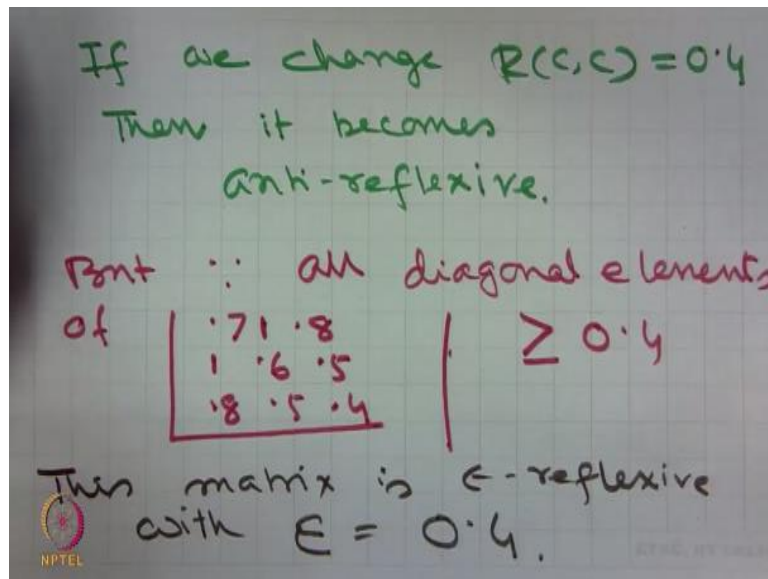 If we change R(C,C) = 0.4
Then it becomes
anti-reflexive.
But ∵ all diagonal elements
of .7 1 .8 ≥ 0.4
1 .6 .5
.8 .5 .4
This matrix is ϵ-reflexive
with ϵ = 0.4.
NPTEL